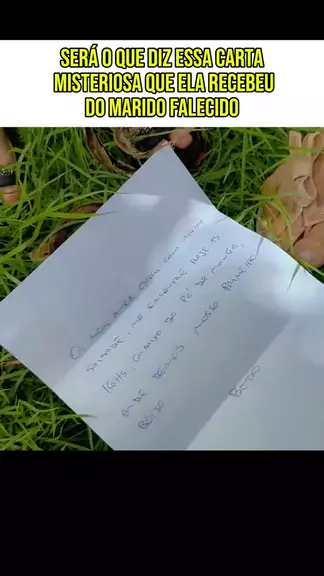 SERÁ O QUE DIZ ESSA CARTA
MISTERIOSA QUE ELA RECEBEU
DO MARIDO FALECIDO
O MEU AMOR ESTOU COM MUITA
SAUDADE, ME ENCONTRE HOJE AS
EMBAIXO DO PÉ DE MANGA,
ONDE DEMOS NOSSO PRIMEIRO
BEIJO
BEIJO